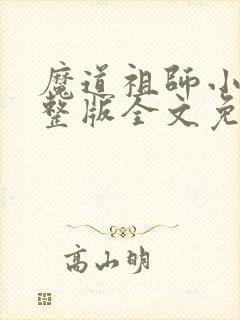 魔道祖师小
整版全文免
高山明